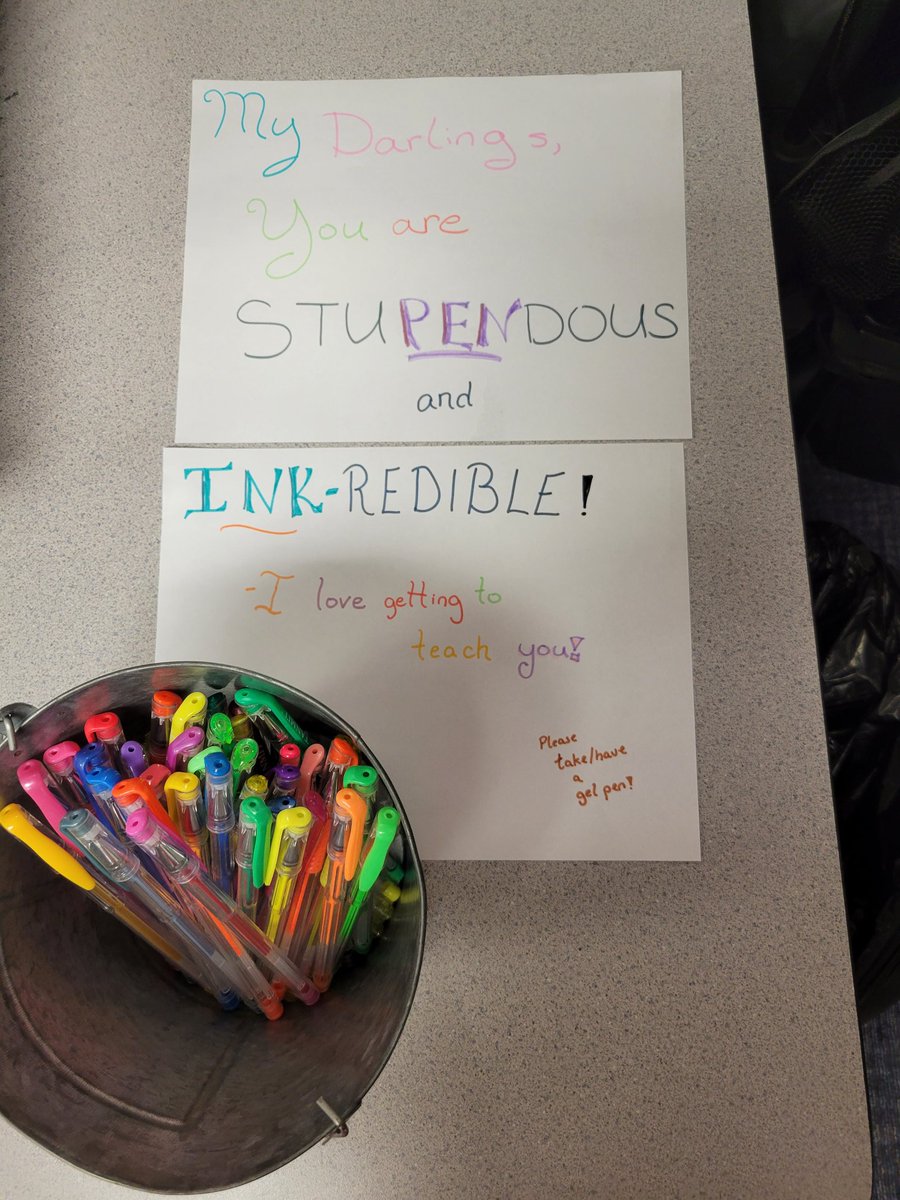 My Darlings,
You are
STUPENDOUS
and
INK-REDIBLE!
-I love getting to
teach you!
Please
take/have
a
gel pen!